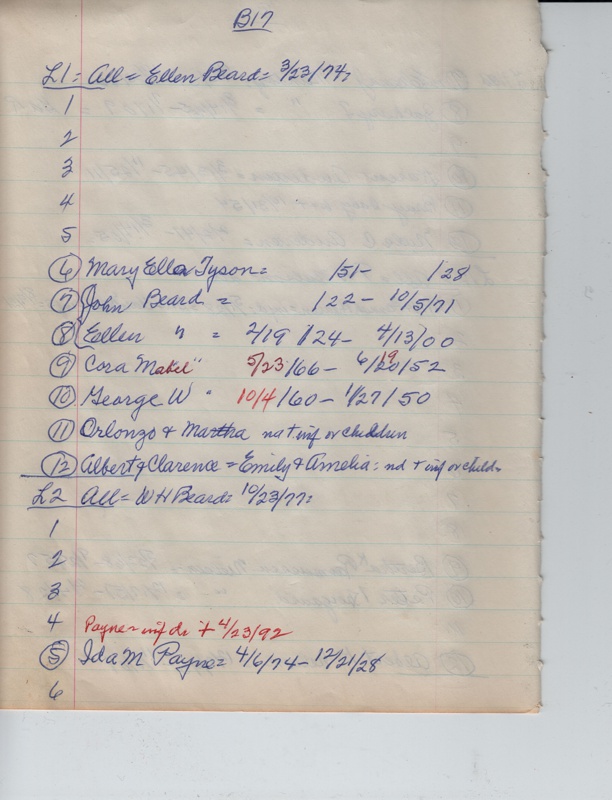 B17
L1 = All = Ellen Beard = 3/23/74,
1
2
3
4
5
6 Mary Ella Tyson = /51- /28
7 John Beard = /22 - 10/5/71
8 Ellen " = 2/19/24 - 4/13/00
9 Cora Mabel " 5/23/66 - 6/19/52
10 George W " 10/4/60 - 1/27/50
11 Orlonzo & Martha nd + inf or children
12 Albert & Clarence = Emily & Amelia: nd + inf or child
L2 All = W H Beard = 10/23/77:
1
2
3
4 Payne inf da + 4/23/92
5 Ida M Payne = 4/6/74 - 12/21/28
6